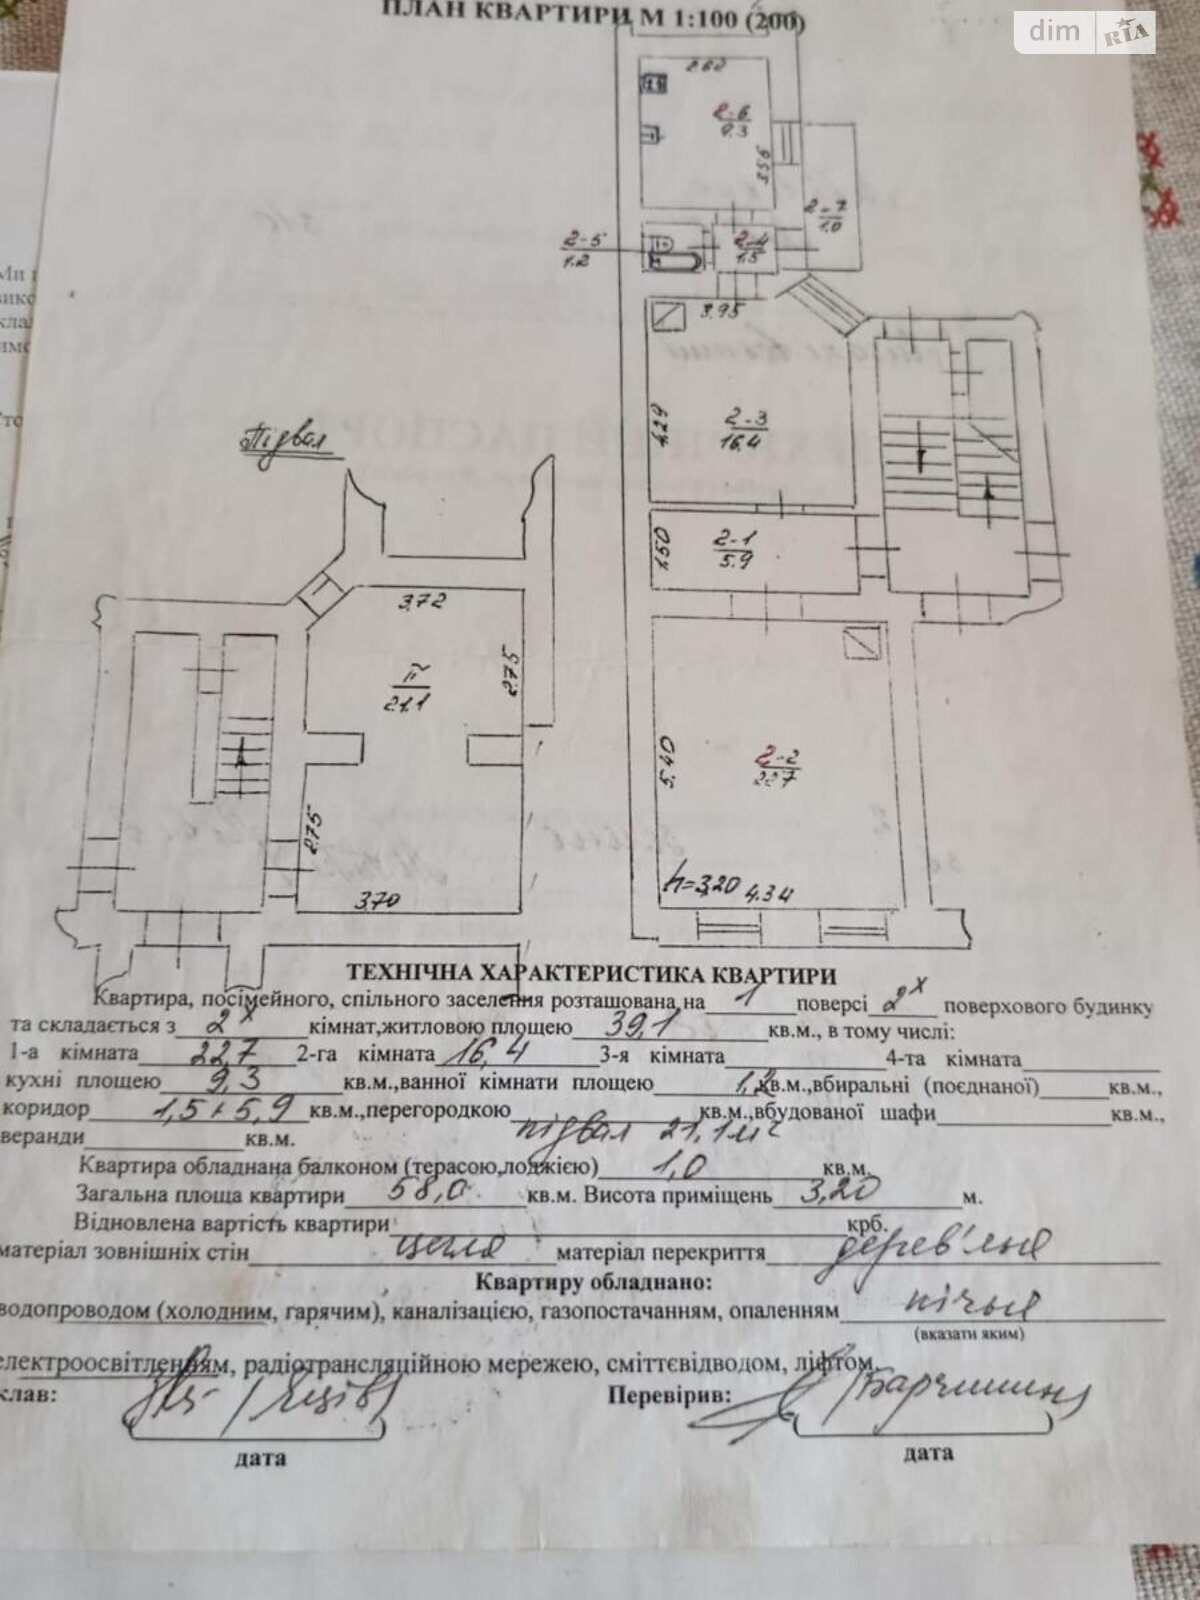 ПЛАН КВАРТИРИ М 1:100 (200)
dim RIA
2.60
2-6
9.3
3.56
2-7
1.0
2-5
1.2
2-4
1.5
3.95
4.29
2-3
16.4
Підвал
1.50
2-1
5.9
3.72
2.75
21.1
5.40
2-2
22.7
2.75
h=3,20 4.34
3.70
ТЕХНІЧНА ХАРАКТЕРИСТИКА КВАРТИРИ
Квартира, посімейного, спільного заселення розташована на 1 поверсі 2х поверхового будинку
та складається з 2х кімнат,житловою площею 39,1 кв.м., в тому числі:
1-а кімната 22,7 2-га кімната 16,4 3-я кімната 4-та кімната
кухні площею 9,3 кв.м.,ванної кімнати площею 1,2 кв.м.,вбиральні (поєднаної) кв.м.,
коридор 1,5+5,9 кв.м.,перегородкою кв.м.,вбудованої шафи кв.м.,
веранди кв.м. підвал 21,1
Квартира обладнана балконом (терасою,лоджією) 1,0 кв.м.
Загальна площа квартири 58,0 кв.м. Висота приміщень 3,20 м.
Відновлена вартість квартири крб.
матеріал зовнішніх стін цегла матеріал перекриття дерев'яне
Квартиру обладнано:
водопроводом (холодним, гарячим), каналізацією, газопостачанням, опаленням пічне
(вказати яким)
електроосвітленням, радіотрансляційною мережею, сміттєвідводом, ліфтом.
клав: Перевірив:
дата дата